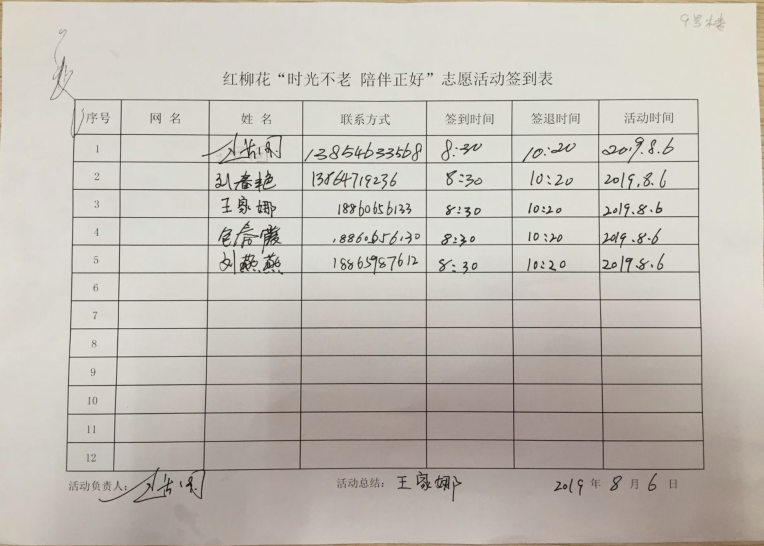 9号楼
红柳花“时光不老 陪伴正好”志愿活动签到表
序号 网名 姓名 联系方式 签到时间 签退时间 活动时间
1 13854633568 8:30 10:20 2019.8.6
2 刘春艳 13864719236 8:30 10:20 2019.8.6
3 王家娜 18860656133 8:30 10:20 2019.8.6
4 18860656130 8:30 10:20 2019.8.6
5 刘燕燕 18865987612 8:30 10:20 2019.8.6
6
7
8
9
10
11
12
活动负责人: 活动总结: 王家娜 2019 年 8 月 6 日